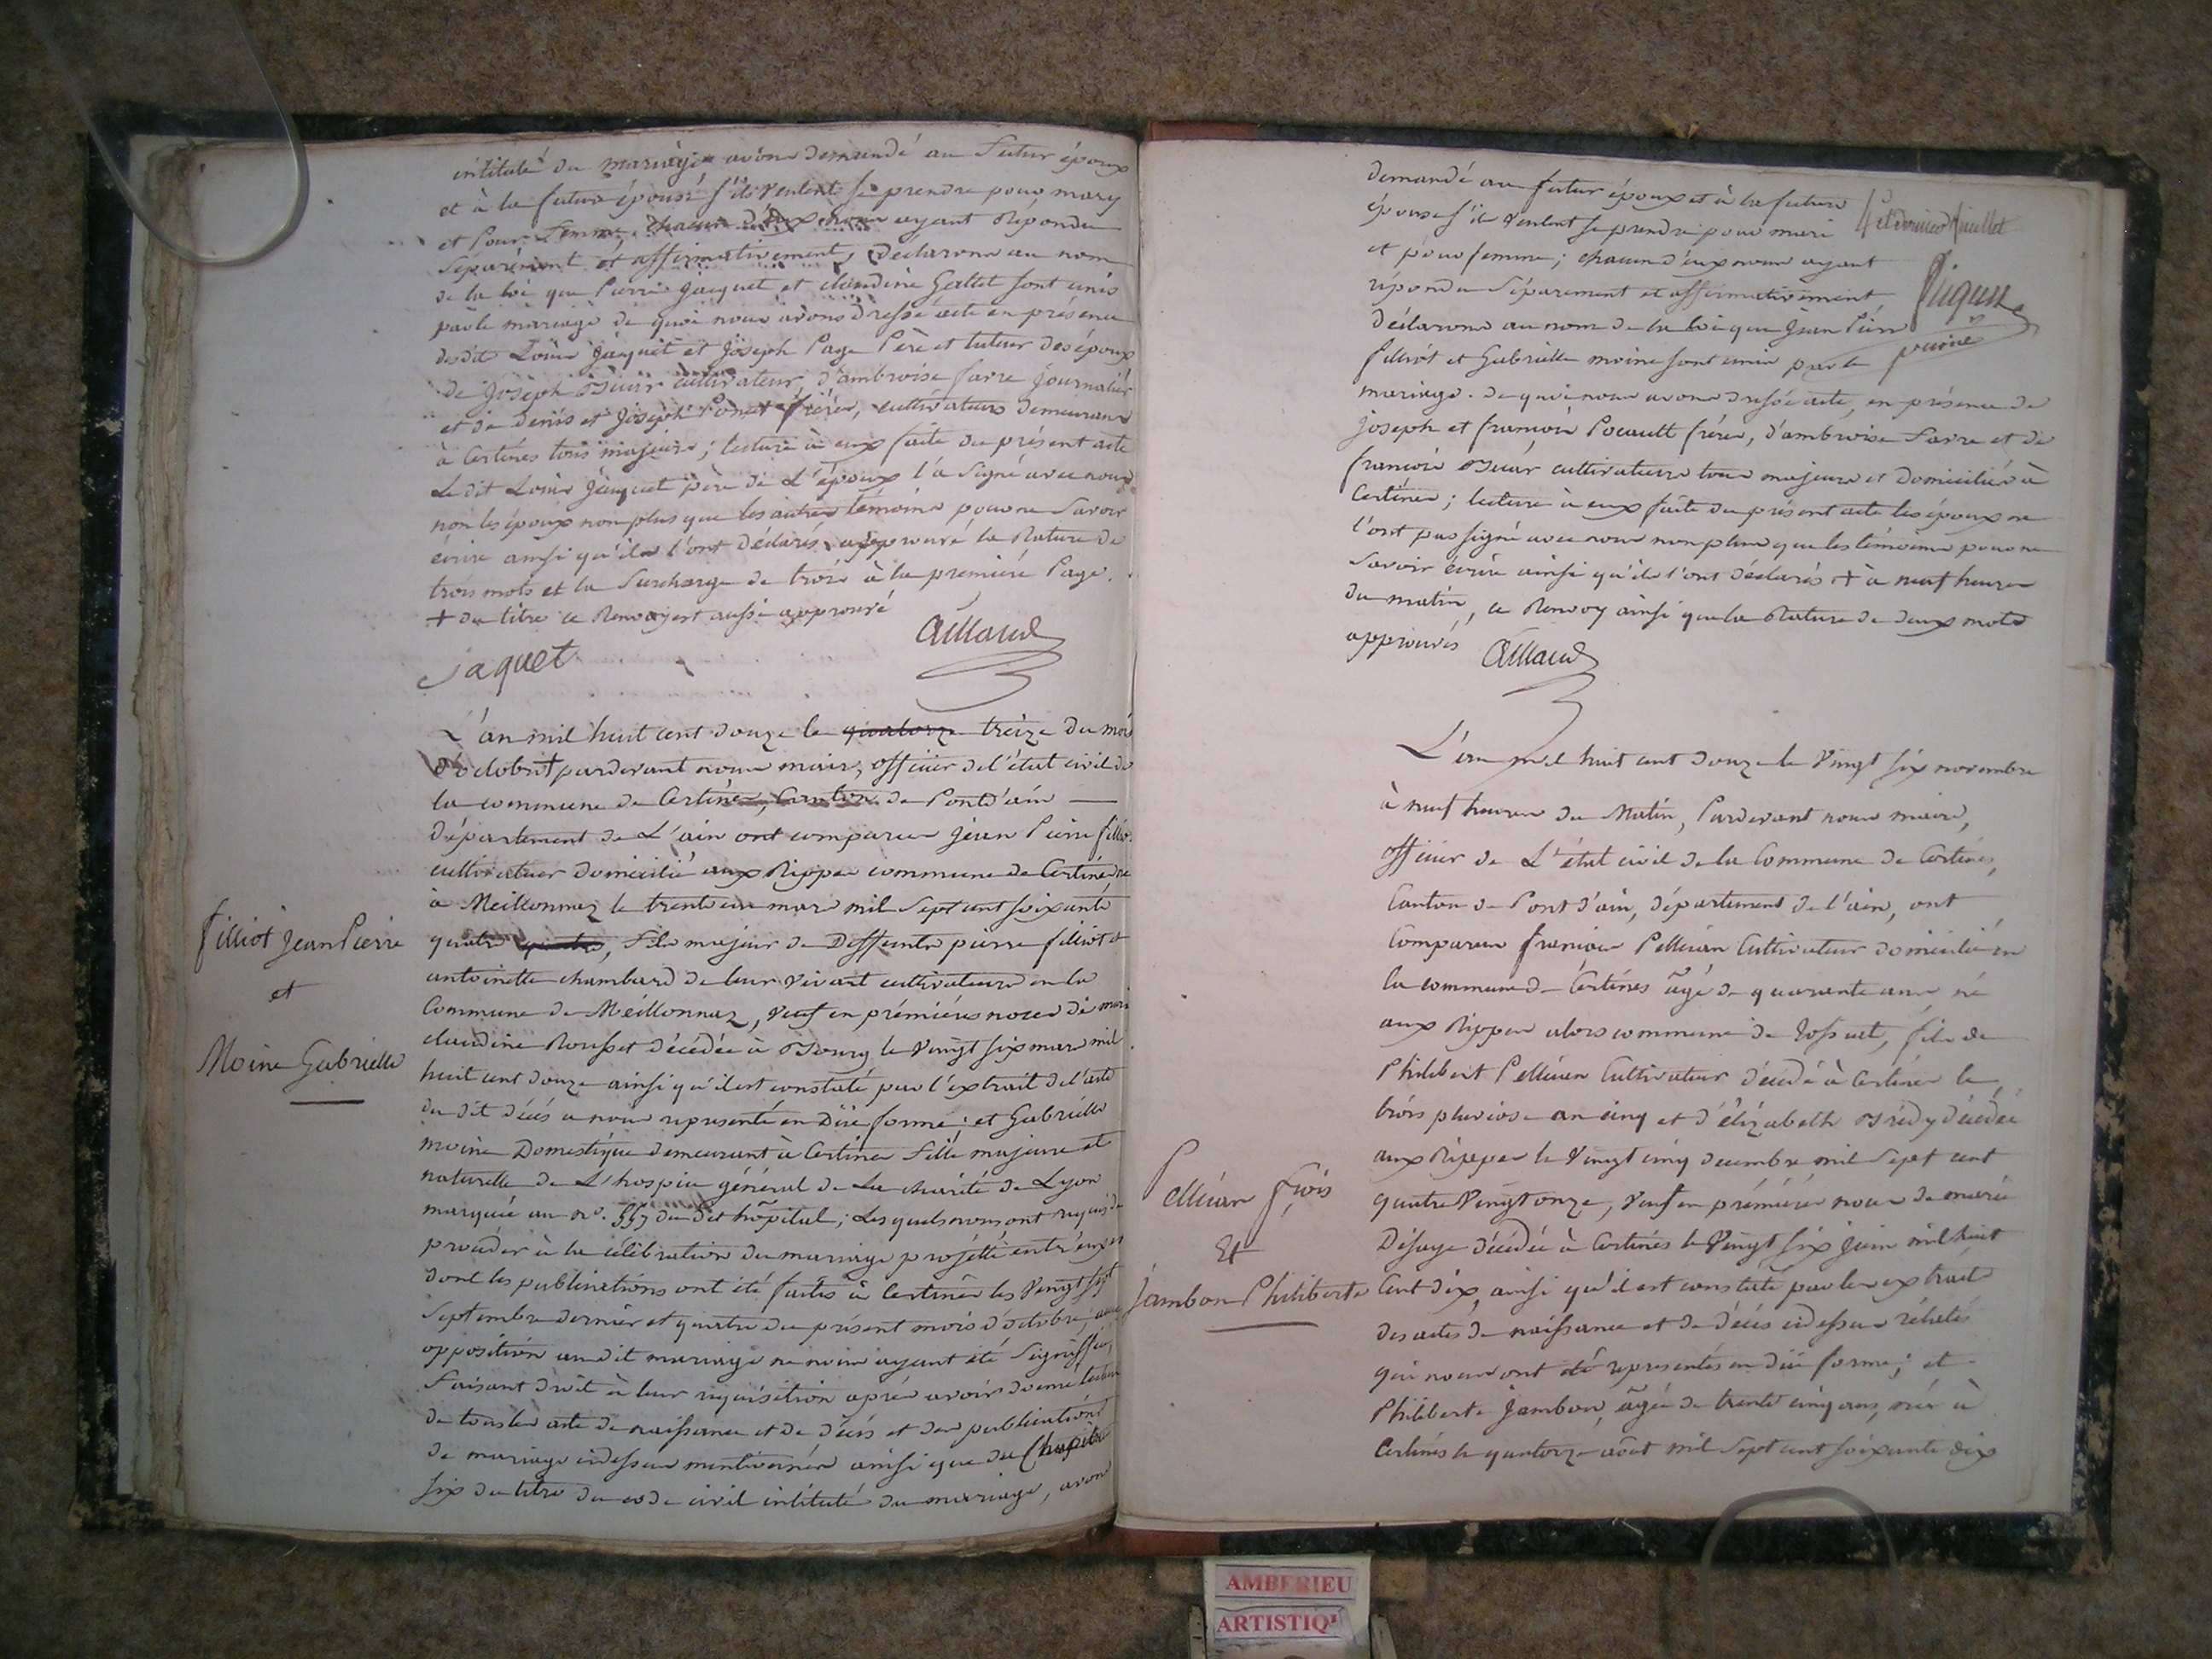 intitulé du mariage avons demandé au futur époux
et à la future épouse s'ils veulent se prendre pour mary
et pour femme, chacun d'eux nous ayant répondu
séparément et affirmativement, déclarons au nom
de la loi que Pierre Jaquet et claudine Gallet sont unis
par le mariage de quoi nous avons dressé acte en présence
desdits Louis Jaquet et Joseph Page Père et tuteur des époux
de Joseph cultivateur, d'ambroise favre Journalier
et de Denis et Joseph Ponet frères, cultivateurs demeurans
à Certines tous majeurs; lecture à eux faite du présent acte
Le dit Louis Jaquet père de L'époux l'a Signé avec nous
non les époux non plus que les autres témoins pour ne Savoir
écrire ainsi qu'ils l'ont déclarés, approuvé la Rature de
trois mots et la Surcharge de trois à la première Page.
+ du titre ce Renvoy est aussi approuvé
Jaquet Aillaud
L'an mil huit cent douze le quatorze treize du mois
d'octobre + pardevant nous maire, officier de l'état civil de
la commune de Certines, Canton de Pontd'ain
département de L'ain ont comparu Jean Pierre filliot
cultivateur domicilié aux Rippes commune de Certines né
à Meillonnaz le trente un mars mil Sept cent soixante
quatre quatre, fils majeur de Deffunts pierre filliot et
antoinette chambard de leur vivant cultivateurs en la
Commune de Meillonnaz, veuf en premières noces de marie
claudine Rousset décédée à Bourg le vingt six mars mil
huit cent douze ainsi qu'il est constaté par l'extrait de l'acte
du dit décès a nous représenté en Due forme; et Gabrielle
moine Domestique demeurant à Certines fille majeure et
naturelle de L'hospice général de La charité de Lyon
marquée au n°. 557 du dit hôpital; Lesquels nous ont requis de
procéder à la célébration du mariage projetté entr'eux et
dont les publications ont été faites à Certines les Vingt sept
Septembre dernier et quatre du présent mois d'octobre; aucune
opposition audit mariage ne nous ayant été Signiffiée,
faisant droit à leur réquisition après avoir donné lecture
de tous les acte de naissance et de décès et des publications
de mariage cidessus mentionnés ainsi que du Chapitre
six du titre du code civil intitulé du mariage, avons
filliot Jean Pierre
et
Moine Gabrielle
demandé au futur époux et à la future
épouse s'ils veulent se prendre pour mari
et pour femme; chacun d'eux nous ayant
répondu Séparement et affirmativement
Déclarons au nom de la loi que Jean Pierre
filliot et Gabrielle moine sont unis par le
mariage. de quoi nous avons dressé acte, en présence de
Joseph et françois Pocault frères, d'ambroise Favre et de
françois cultivateurs tous majeurs et domiciliés à
Certines; lecture à eux faite du présent acte les époux ne
l'ont pas signé avec nous non plus que les témoins pour ne
Savoir écrire ainsi qu'ils l'ont déclarés + à neuf heures
du matin, ce Renvoy ainsi que la Rature de deux mots
approuvés Aillaud
4e et dernier feuillet
L'an mil huit cent douze le Vingt six novembre
à neuf heures du Matin, Pardevant nous maire,
officier de L'état civil de la Commune de Certines,
Canton de Pont d'ain, département de l'ain, ont
Comparu françois Pellican Cultivateur domicilié en
la commune de Certines âgé de quarante ans né
aux Rippes alors commune de Tossiat, fils de
Philibert Pellican Cultivateur décédé à Certines le
trois pluviose an cinq et d'élizabeth décédée
aux Rippes le Vingt cinq decembre mil Sept cent
quatre Vingt onze, veuf en première noces de marie
décédée à Certines le Vingt six Juin mil huit
Cent dix, ainsi qu'il est constaté par les extraits
des actes de naissance et de décès cidessus rélatés
qui nous ont été représentés en due forme; et
Philiberte Jambon, âgée de trente cinq ans, née à
Certines le quatorze août mil Sept cent soixante dix
Pellican fçois
Et
Jambon Philiberte
AMBERIEU
ARTISTIQ